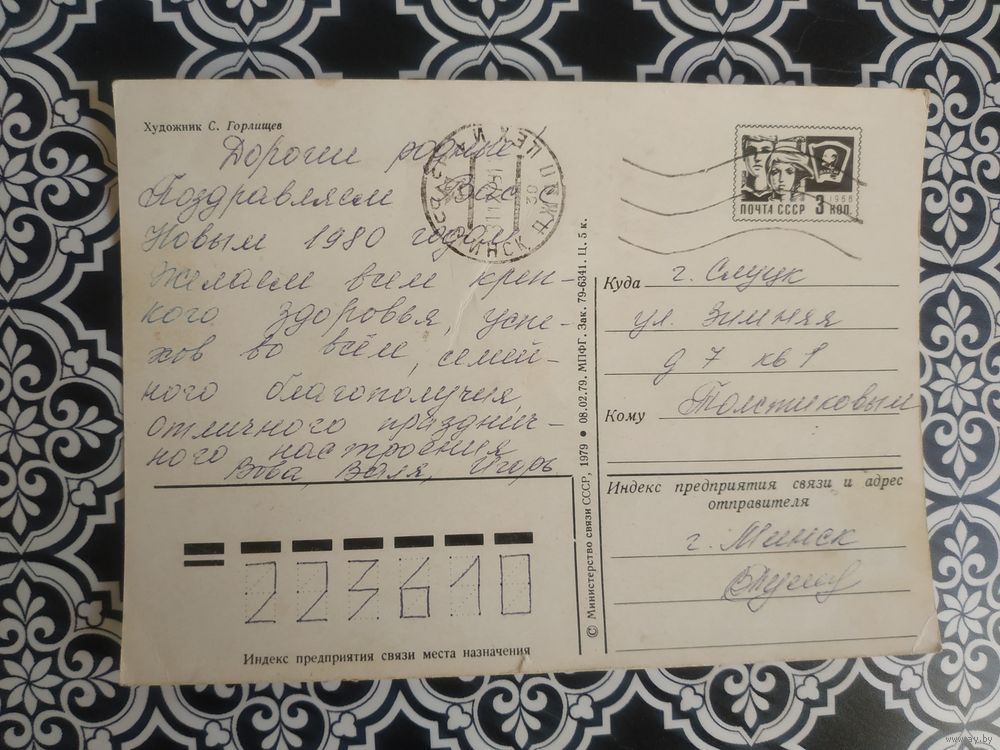 Художник С. Горлищев
Дорогие родные
Поздравляем Вас с
Новым 1980 годом
Желаем всем креп-
кого здоровья, успе-
хов во всём, семей-
ного благополучия,
отличного празднич-
ного настроения
Вова, Валя, Игорь
223610
Индекс предприятия связи места назначения
© Министерство связи СССР, 1979 ● 08.02.79. МПФГ. Зак. 79-6341. Ц. 5 к.
МИНСК
1966
ПОЧТА СССР 3 КОП.
Куда г. Слуцк
ул. Зимняя
д 7 кв 1
Кому Толстиковым
Индекс предприятия связи и адрес
отправителя
г. Минск
www.ay.by